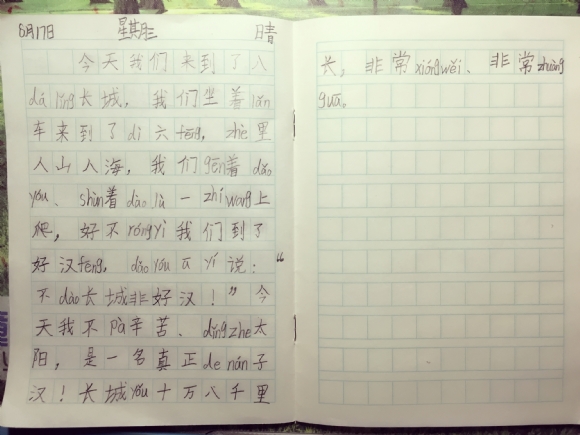 8月17日 星期三 晴
今天我们来到了八
dá lǐng长城，我们坐着lǎn
车来到了dì六fēng，zhè里
人山人海，我们gēn着dǎo
yóu、shùn着dào lù一zhí wǎng上
爬，好不róng yì我们到了
好汉fēng，dǎo yóu ā yí说：“
不dào长城非好汉！”今
天我不pà辛苦、dǐng zhe太
阳，是一名真正de nán子
汉！长城yǒu十万八千里
长，非常xióng wěi、非常zhuàng
guā。